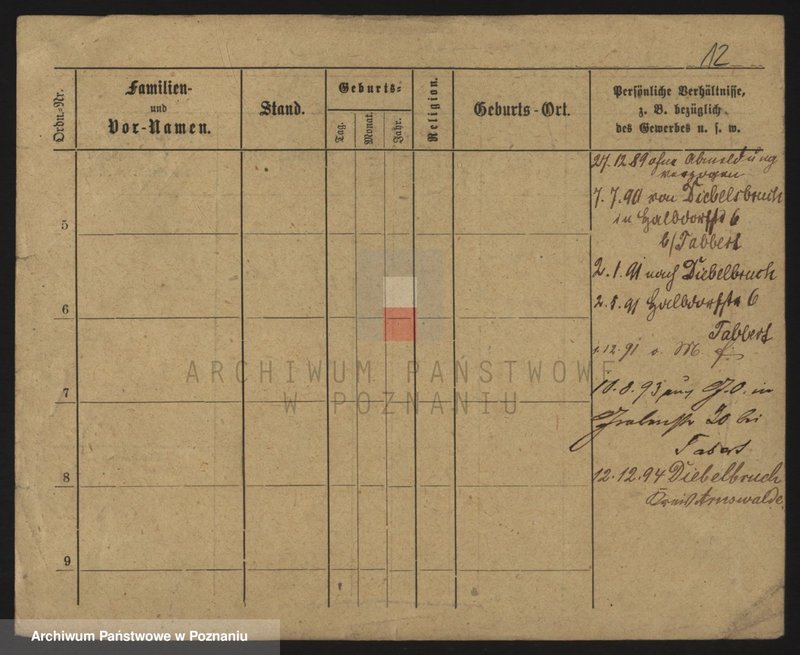 12
Ordn.-Nr.
Familien-
und
Vor-Namen.
Stand.
Geburts-
Tag.
Monat.
Jahr.
Religion.
Geburts-Ort.
Persönliche Verhältnisse,
z. B. bezüglich
des Gewerbes u. s. w.
27.12.89 ohne Abmeldung
verzogen
7.7.90 von Diebelsbruch
in Halbdorfstr 6
b/Tabbert
2.1.91 nach Diebelbruch
2.5.91 Halbdorfstr 6
Tabbert
1.12.91 o. M.
10.8.93 aus in
Grabenstr 20 bei
Tabert
12.12.94 Diebelbruch
Kreis Arnswalde
5
6
7
8
9
ARCHIWUM PAŃSTWOWE
W POZNANIU
Archiwum Państwowe w Poznaniu